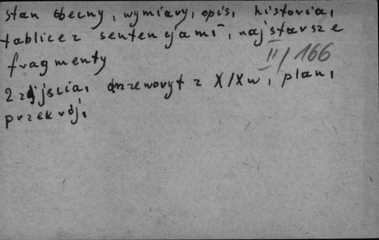 stan obecny, wymiary, opis, historia,
tablice z sentencjami, najstarsze
fragmenty
II/166
2 zdjęcia, drzeworyt z XIXw, plan,
przekrój,